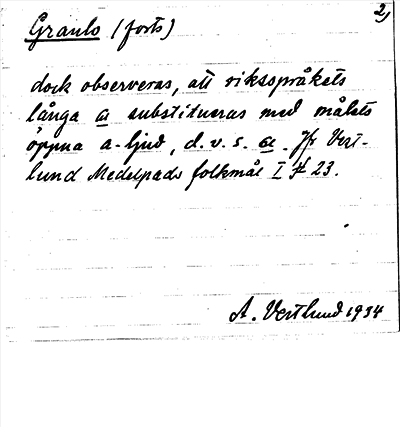 2,
Graulo (forts)
dock observeras, att riksspråkets
långa a substitueras med målets
öppna a-ljud, d.v.s. æ. Jfr Vest-
lund Medelpads folkmål I § 23.
A. Vestlund 1934